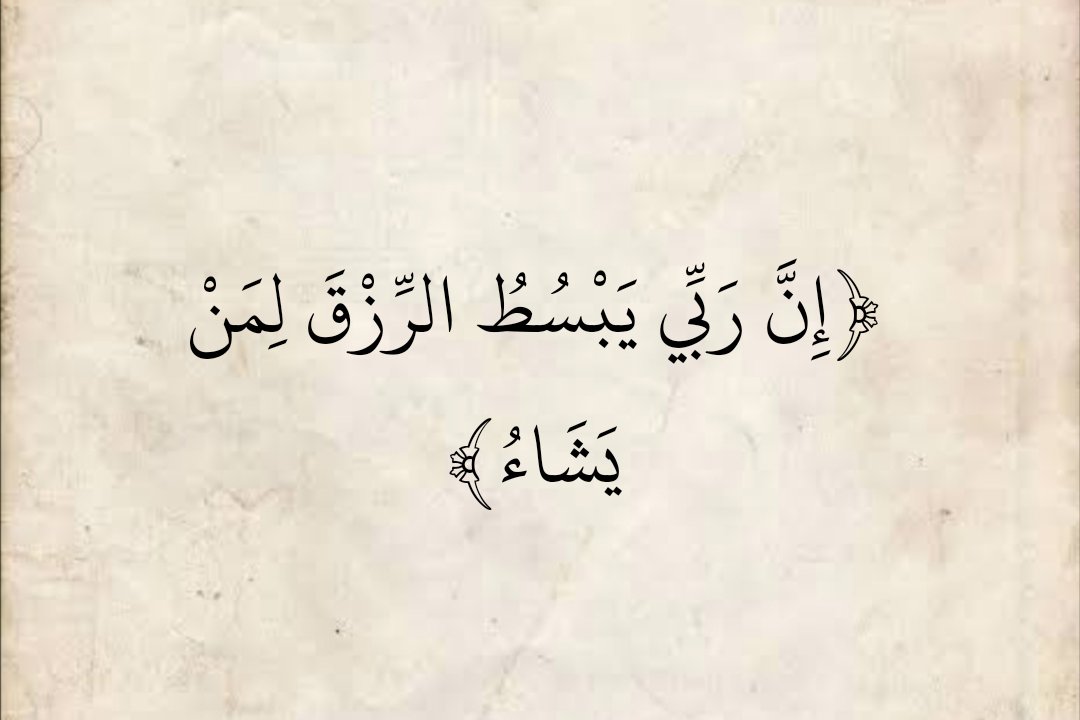 ﴿إِنَّ رَبِّي يَبْسُطُ الرِّزْقَ لِمَنْ
يَشَاءُ﴾